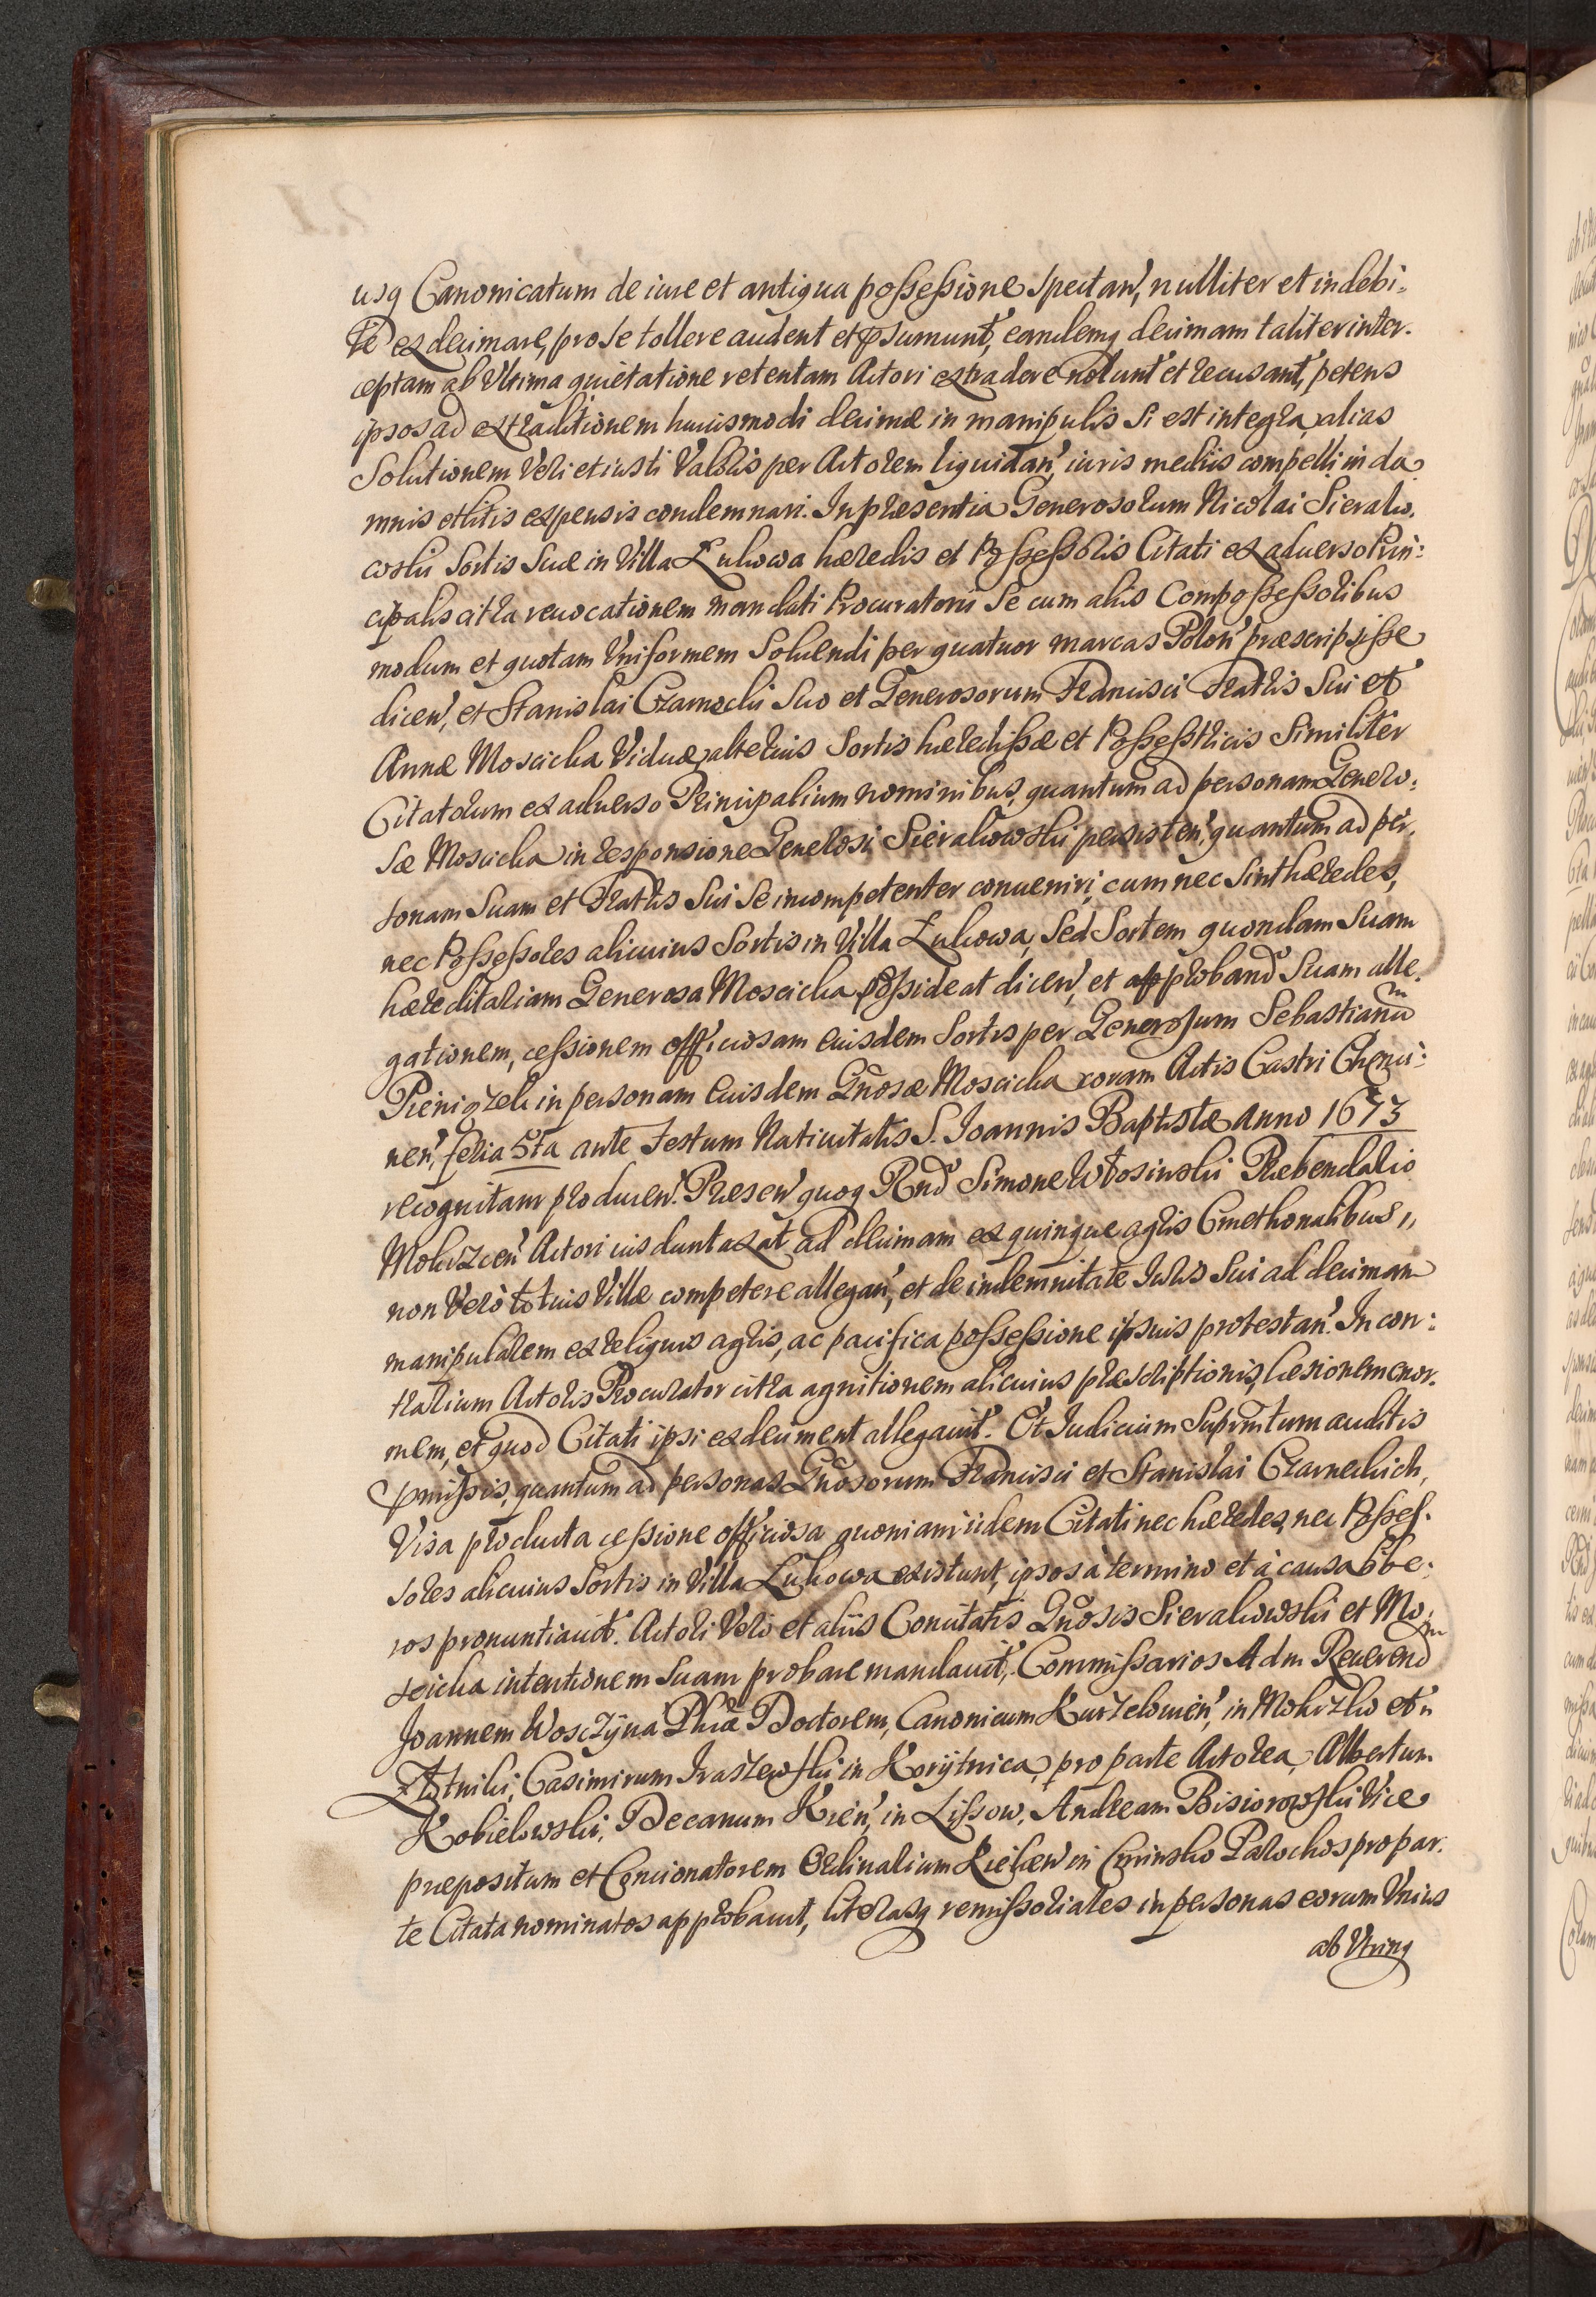 usq Canonicatum de iure et antiqua possessione spectan', nulliter et indebi=
te exdecimare, pro se tollere audent et psumunt, eandemq decimam taliter inter=
ceptam ab Vltima quietatione retentam Actori extradere nolunt et recusant, petens
ipsos ad extraditionem huiusmodi decimæ in manipulis si est integra, alias
Solutionem Veri et iusti Valoris per Actorem liquidan', iuris mediis compelli in da=
mnis et litis expensis condemnari. In præsentia Generosorum Nicolai Sierako=
wski Sortis suæ in Villa Łukowa hæredis et Possessoris Citati ex aduerso Prin=
cipalis citra reuocationem mandati Procuratorii se cum aliis Compossessoribus
modum et quotam Vniformem Soluendi per quatuor marcas Polon' præscripsisse
dicen', et Stanislai Czarnecki suo et Generosorum Francisci Fratris sui et
Annæ Moscicka Viduæ, alterius Sortis hæredissæ et Possesstricis Similiter
Citatorum ex aduerso Principalium nominibus, quantum ad personam Genero=
sæ Moscicka in responsione Generosi Sierakowski persisten', quantum ad per=
sonam suam et Fratris sui se incompetenter conueniri, cum nec sint hæredes,
nec Possessores alicuius Sortis in Villa Łukowa, sed Sortem quondam suam
hæreditariam Generosa Moscicka possideat dicen', et approband' suam alle=
gationem, cessionem officiosam eiusdem Sortis per Generosum Sebastianum
Pieniązek in personam eiusdem Gnosæ Moscicka coram Actis Castri Chenci=
nen', feria 5ta ante Festum Natiuitatis S. Joannis Baptistæ Anno 1673
recognitam producen'. Præsen' quoq Rnd' Simone Włosinski Præbendario
Mokrzcen' Actori ius duntaxat ad decimam ex quinque agris Cmethonalibus,,
non Verò totius Villæ competere allegan', et de indemnitate Juris sui ad decimam
manipularem ex reliquis agris, ac pacifica possessione ipsius protestan'. In con=
trarium Actoris Procurator citra agnitionem alicuius præscriptionis, læsionem enor=
mem, et quod Citati ipsi exdeciment allegauit. Et Iudicium Suprmtum auditis
pmissis, quantum ad personas Gnosorum Francisci et Stanislai Czarneckich,
Visa producta cessione officiosa quoniam iidem Citati nec hæredes, nec Posses=
sores alicuius Sortis in Villa Łukowa existunt, ipsos à termino et à causa libe=
ros pronuntiauit. Actori Verò et aliis Concitatis Gnosis Sierakowski et Mo=
scicka intentionem suam probare mandauit, Commissarios Adm Reuerendm
Joannem Woszczyna Phiæ Doctorem, Canonicum Kurzelouien', in Mokrzko et
Złotniki, Casimirum Iraszewski in Korÿtnica, pro parte Actorea, Albertum
Kobielowski, Decanum Kien', in Lissow, Andream Bisiorowski Vice
præpositum et Concionatorem Ordinarium Kielcen' in Cminsko Parochos pro par=
te Citata nominatos approbauit, literasq remissoriales in personas eorum Vnius
ab Vtrinq